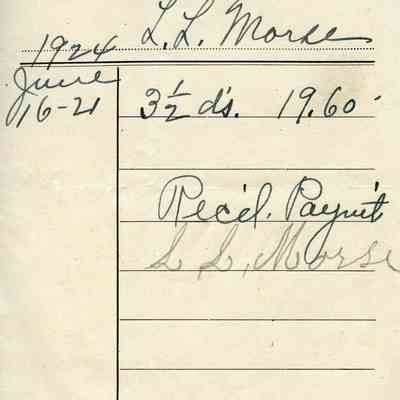 L. L. Morse
1924
June
16-21 3 1/2 d's. 19.60
Rec'd. Paym't
L L, Morse